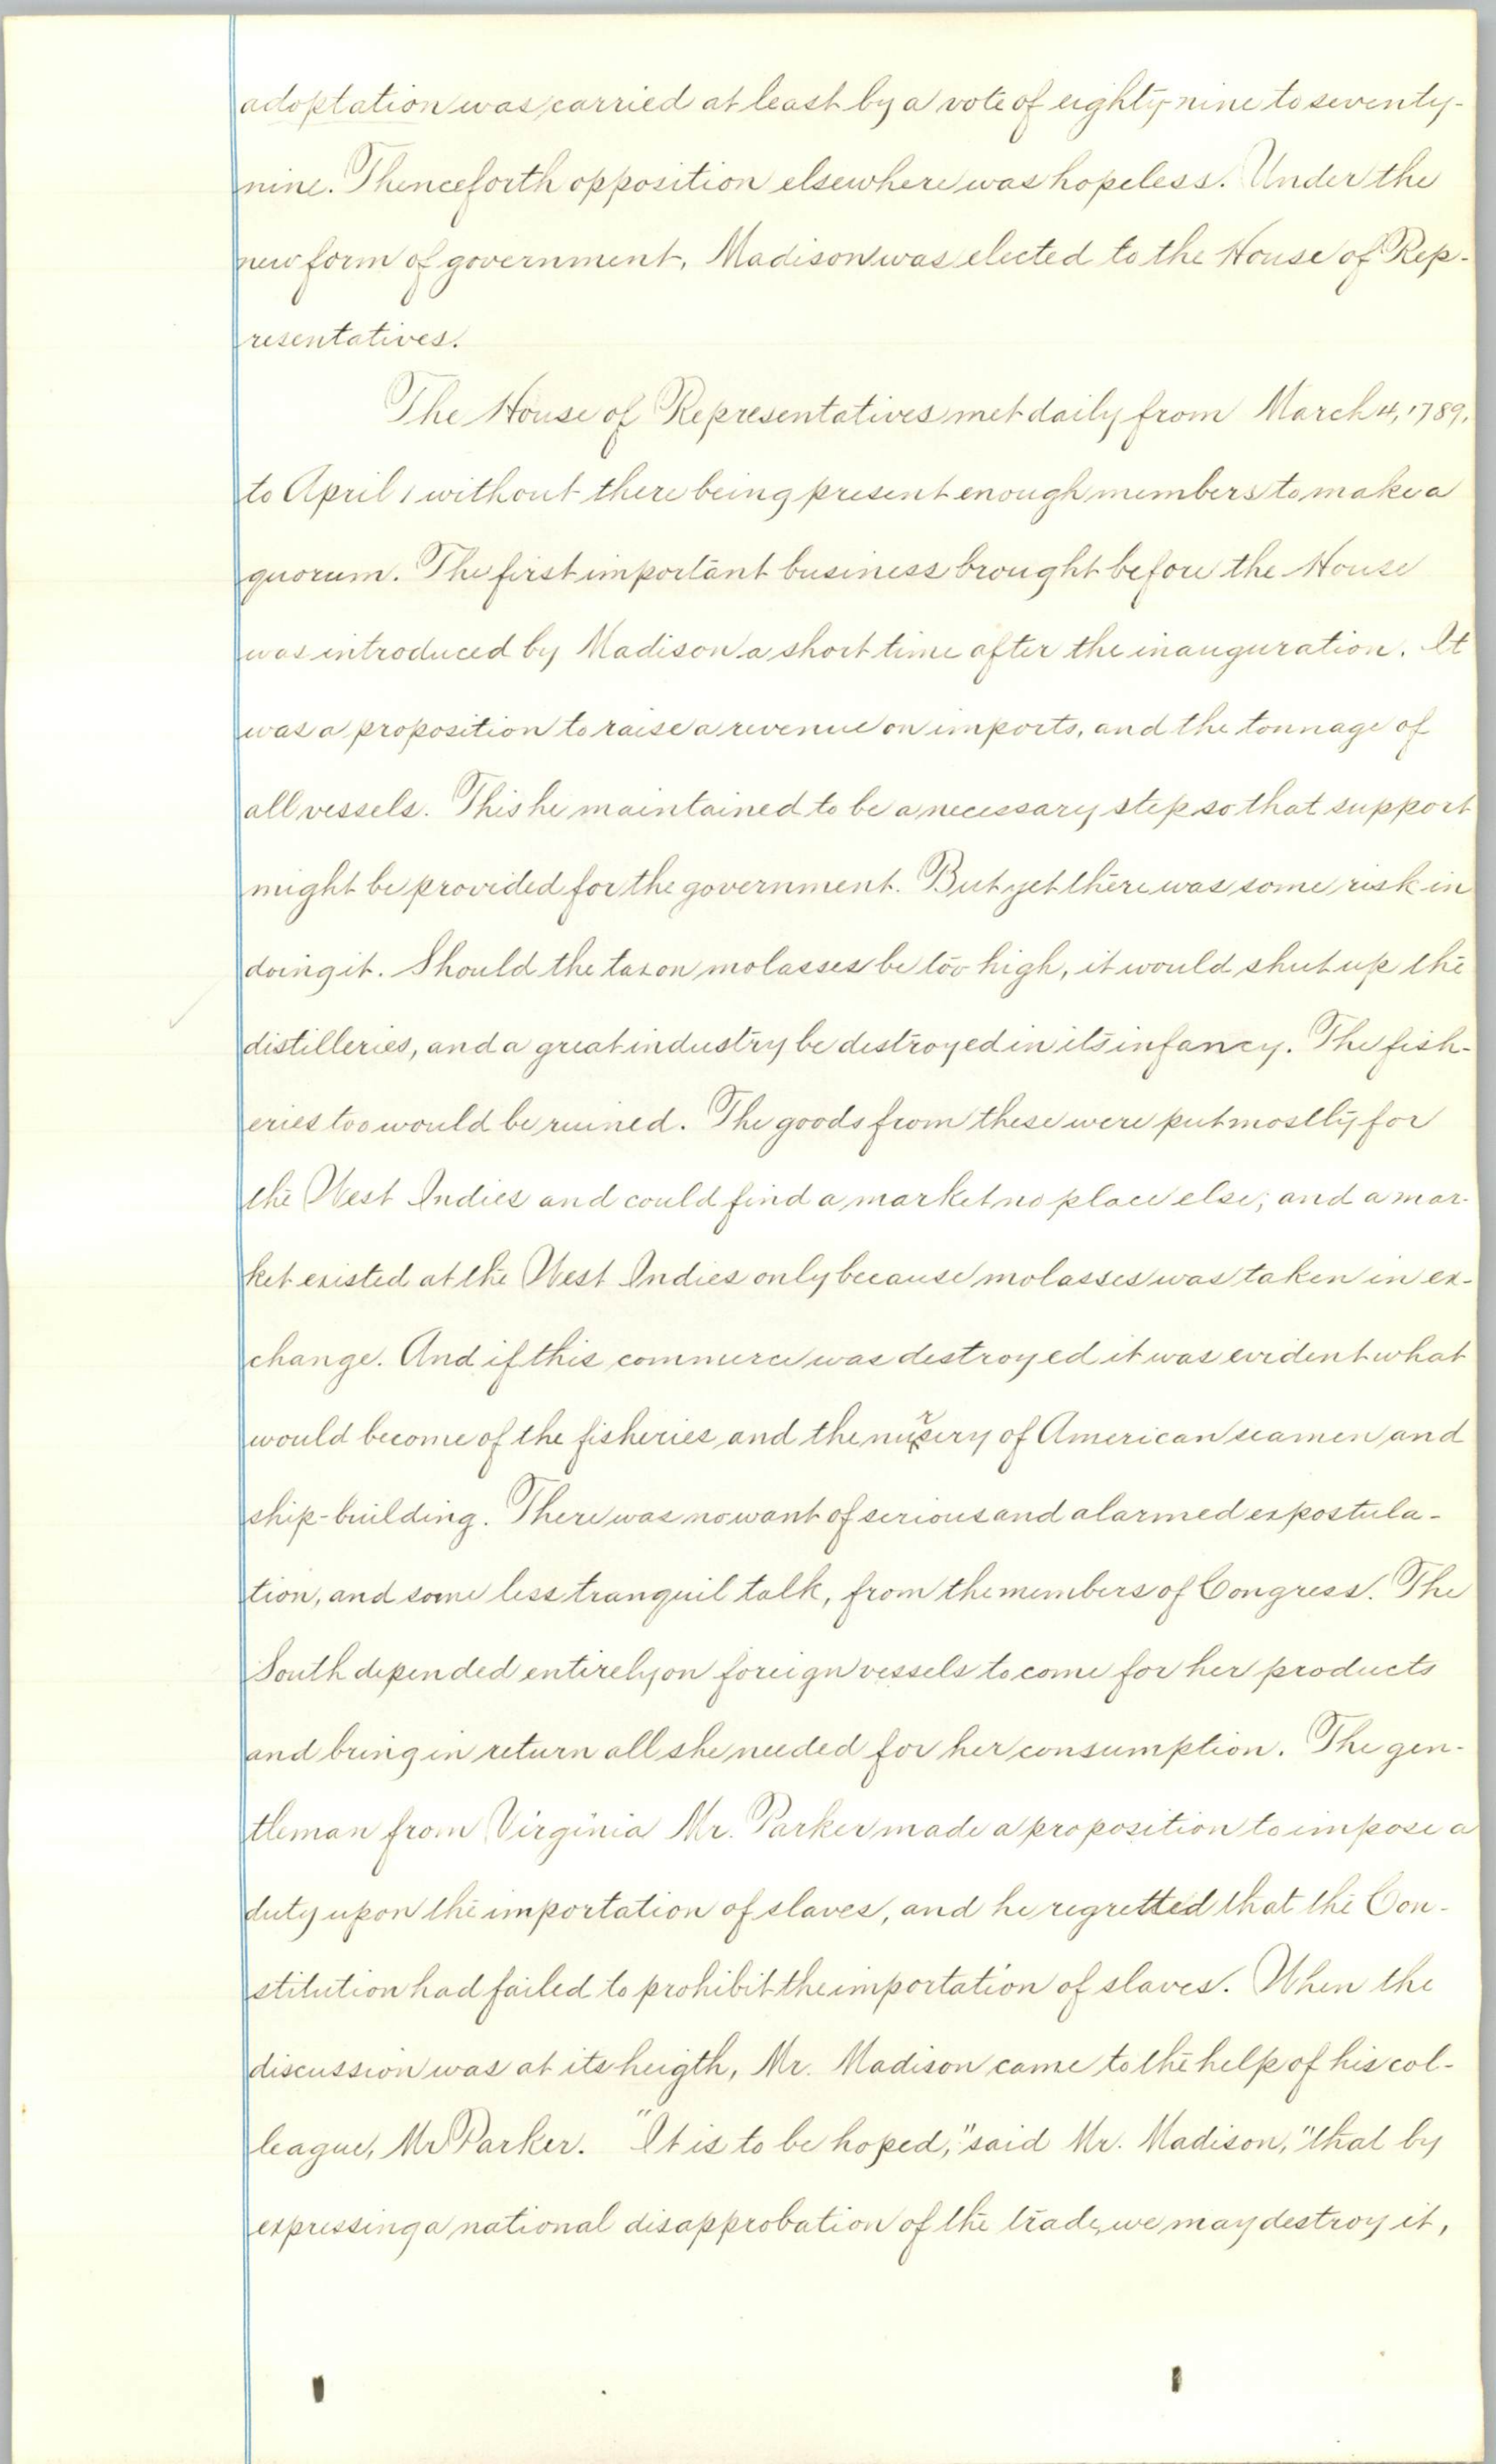 adoptation was carried at least by a vote of eighty-nine to seventy-
nine. Thenceforth opposition elsewhere was hopeless. Under the
new form of government, Madison was elected to the House of Rep-
resentatives.
The House of Representatives met daily from March 4, 1789,
to April 1 without there being present enough members to make a
quorum. The first important business brought before the House
was introduced by Madison a short time after the inauguration. It
was a proposition to raise a revenue on imports, and the tonnage of
all vessels. This he maintained to be a necessary step so that support
might be provided for the government. But yet there was some risk in
doing it. Should the tax on molasses be too high, it would shut up the
distilleries, and a great industry be destroyed in its infancy. The fish-
eries too would be ruined. The goods from these were put mostly for
the West Indies and could find a market no place else; and a mar-
ket existed at the West Indies only because molasses was taken in ex-
change. And if this commerce was destroyed it was evident what
would become of the fisheries and the nursery of American seamen and
ship-building. There was no want of serious and alarmed expostula-
tion, and some less tranquil talk, from the members of Congress. The
South depended entirely on foreign vessels to come for her products
and bring in return all she needed for her consumption. The gen-
tleman from Virginia Mr. Parker made a proposition to impose a
duty upon the importation of slaves, and he regretted that the Con-
stitution had failed to prohibit the importation of slaves. When the
discussion was at its heigth, Mr. Madison came to the help of his col-
league, Mr Parker. "It is to be hoped," said Mr. Madison, "that by
expressing a national disapprobation of the trade, we may destroy it,